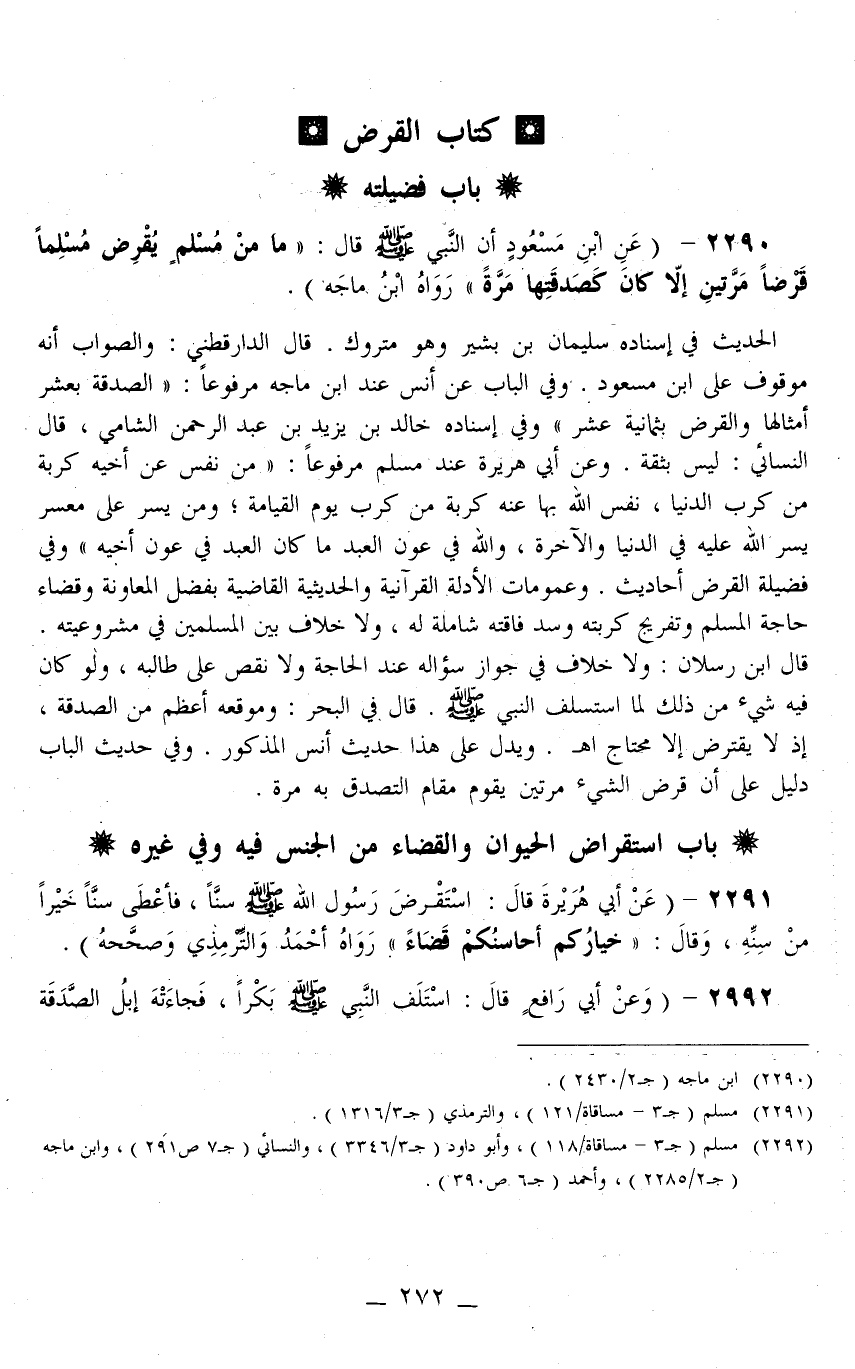 كتاب القرض
باب فضيلته
٢٢٩٠ – ( عَنِ ابْنِ مَسْعُودٍ أن النَّبي ﷺ قال : « ما منْ مُسْلمٍ يُقْرِض مُسْلِماً
قَرْضاً مَرَّتينِ إلّا كانَ كَصَدقَتِها مَرَّةً » رَوَاهُ ابْنُ ماجَه ) .
الحديث في إسناده سليمان بن بشير وهو متروك . قال الدارقطني : والصواب أنه
موقوف على ابن مسعود . وفي الباب عن أنس عند ابن ماجه مرفوعاً : « الصدقة بعشر
أمثالها والقرض بثمانية عشر » وفي إسناده خالد بن يزيد بن عبد الرحمن الشامي ، قال
النسائي : ليس بثقة . وعن أبي هريرة عند مسلم مرفوعاً : « من نفس عن أخيه كربة
من كرب الدنيا ، نفس الله بها عنه كربة من كرب يوم القيامة ؛ ومن يسر على معسر
يسر الله عليه في الدنيا والآخرة ، والله في عون العبد ما كان العبد في عون أخيه » وفي
فضيلة القرض أحاديث . وعمومات الأدلة القرآنية والحديثية القاضية بفضل المعاونة وقضاء
حاجة المسلم وتفريج كربته وسد فاقته شاملة له ، ولا خلاف بين المسلمين في مشروعيته .
قال ابن رسلان : ولا خلاف في جواز سؤاله عند الحاجة ولا نقص على طالبه ، ولو كان
فيه شيء من ذلك لما استسلف النبي ﷺ . قال في البحر : وموقعه أعظم من الصدقة ،
إذ لا يقترض إلا محتاج اهـ . ويدل على هذا حديث أنس المذكور . وفي حديث الباب
دليل على أن قرض الشيء مرتين يقوم مقام التصدق به مرة .
باب استقراض الحيوان والقضاء من الجنس فيه وفي غيره
٢٢٩١ – ( عَنْ أبي هُرَيْرةَ قالَ : اسْتَقْرضَ رَسُول الله ﷺ سنَّاً ، فأعْطَى سنَّاً خَيْراً
منْ سِنِّهِ ، وَقالَ : « خيارُكم أحاسنُكمْ قَضَاءً » رَوَاهُ أحْمَدُ وَالتِّرْمِذي وَصحَّحهُ ) .
٢٩٩٢ – ( وَعنْ أبي رَافعٍ قالَ : اسْتَلَف النَّبِي ﷺ بَكْراً ، فَجاءَتْهَ إبلُ الصَّدَقَة
(٢٢٩٠) ابن ماجه ( جـ٢/٢٤٣٠ ) .
(٢٢٩١) مسلم ( جـ٣ – مساقاة/١٢١ ) ، والترمذي ( جـ٣/١٣١٦ ) .
(٢٢٩٢) مسلم ( جـ٣ – مساقاة/١١٨ ) ، وأبو داود ( جـ٣/٣٣٤٦ ) ، والنسائي ( جـ٧ ص٢٩١ ) ، وابن ماجه
( جـ٢/٢٢٨٥ ) ، وأحمد ( جـ٦ ص٣٩٠ ) .
_ ٢٧٢ _